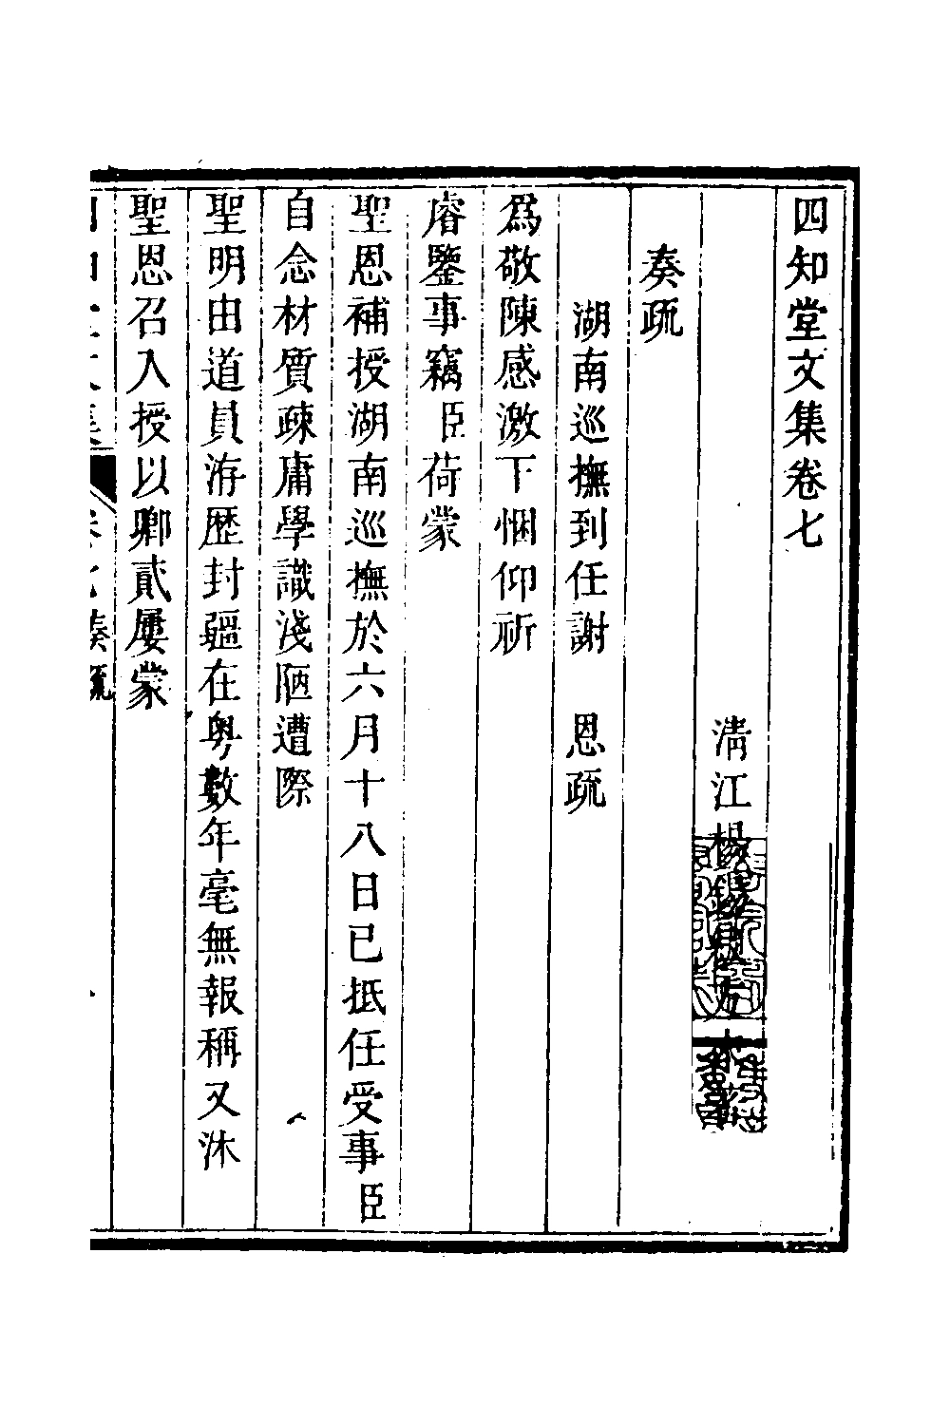 四知堂文集卷七
清江楊錫紱方來著
奏疏
湖南巡撫到任謝　恩疏
爲敬陳感激下悃仰祈
睿鑒事竊臣荷蒙
聖恩補授湖南巡撫於六月十八日已抵任受事臣
自念材質疎庸學識淺陋遭際
聖明由道員洊歴封疆在粤數年毫無報稱又沐
聖恩召入授以卿貳屢蒙